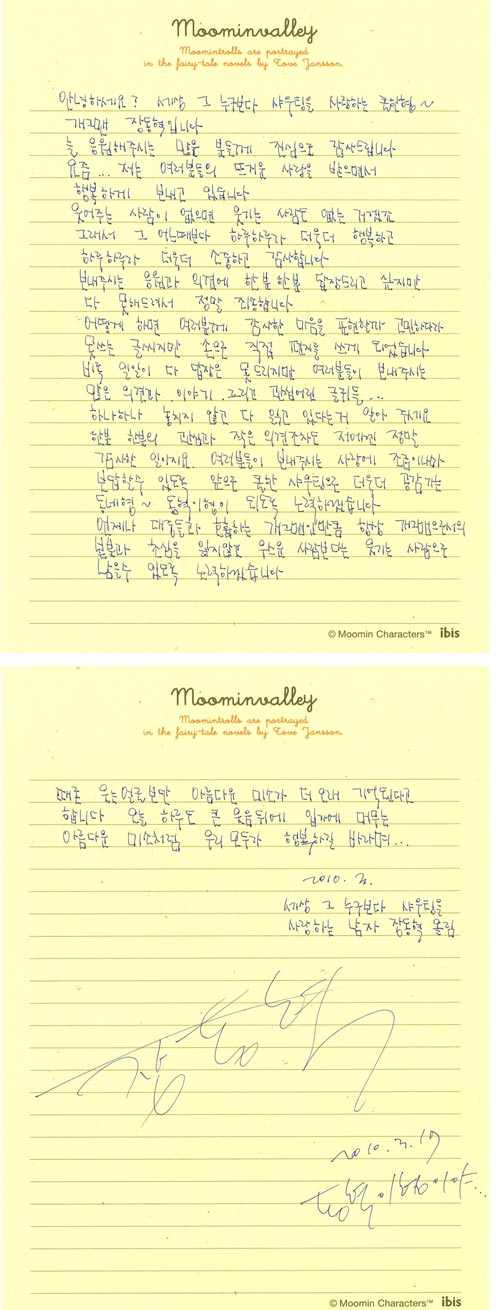 Moominvalley
Moomintrolls are portrayed
in the fairy-tale novels by Tove Jansson.
안녕하세요? 세상 그 누구보다 샤우팅을 사랑하는 동혁이형~
개그맨 장동혁입니다
늘 응원해주시는 많은 분들께 진심으로 감사드립니다
요즘... 저는 여러분들의 뜨거운 사랑을 받으면서
행복하게 보내고 있습니다
웃어주는 사람이 없으면 웃기는 사람도 없는 거겠죠
그래서 그 어느때보다 하루하루가 더욱더 행복하고
하루하루가 더욱더 소중하고 감사합니다
보내주시는 응원과 의견에 한분 한분 답장드리고 싶지만
다 못해드려서 정말 죄송합니다
어떻게 하면 여러분께 감사한 마음을 표현할까 고민하다가
못쓰는 글씨지만 손으로 직접 편지를 쓰게 되었습니다
비록 일일이 다 답장은 못드리지만 여러분들이 보내주시는
많은 의견과 이야기 그리고 관심어린 글귀들...
하나하나 놓치지 않고 다 읽고 있다는거 알아 주세요
한분 한분의 관심과 작은 의견조차도 저에겐 정말
감사한 일이지요. 여러분들이 보내주시는 사랑에 조금이나마
보답할수 있도록 앞으로 통한 샤우팅으로 더욱더 공감가는
동네형~ 동혁이형이 되도록 노력하겠습니다
언제나 대중들과 호흡하는 개그맨인만큼 항상 개그맨으로서의
본분과 초심을 잃지않고 우스운 사람보다는 웃기는 사람으로
남을수 있도록 노력하겠습니다
© Moomin Characters™ ibis
Moominvalley
Moomintrolls are portrayed
in the fairy-tale novels by Tove Jansson.
때로 웃는얼굴보단 아름다운 미소가 더 오래 기억된다고
합니다 오늘 하루도 큰 웃음뒤에 입가에 머무는
아름다운 미소처럼 우리 모두가 행복하길 바라며...
2010. 3.
세상 그 누구보다 샤우팅을
사랑하는 남자 장동혁 올림
장동혁
2010. 3. 17
동혁이형이야...
© Moomin Characters™ ibis